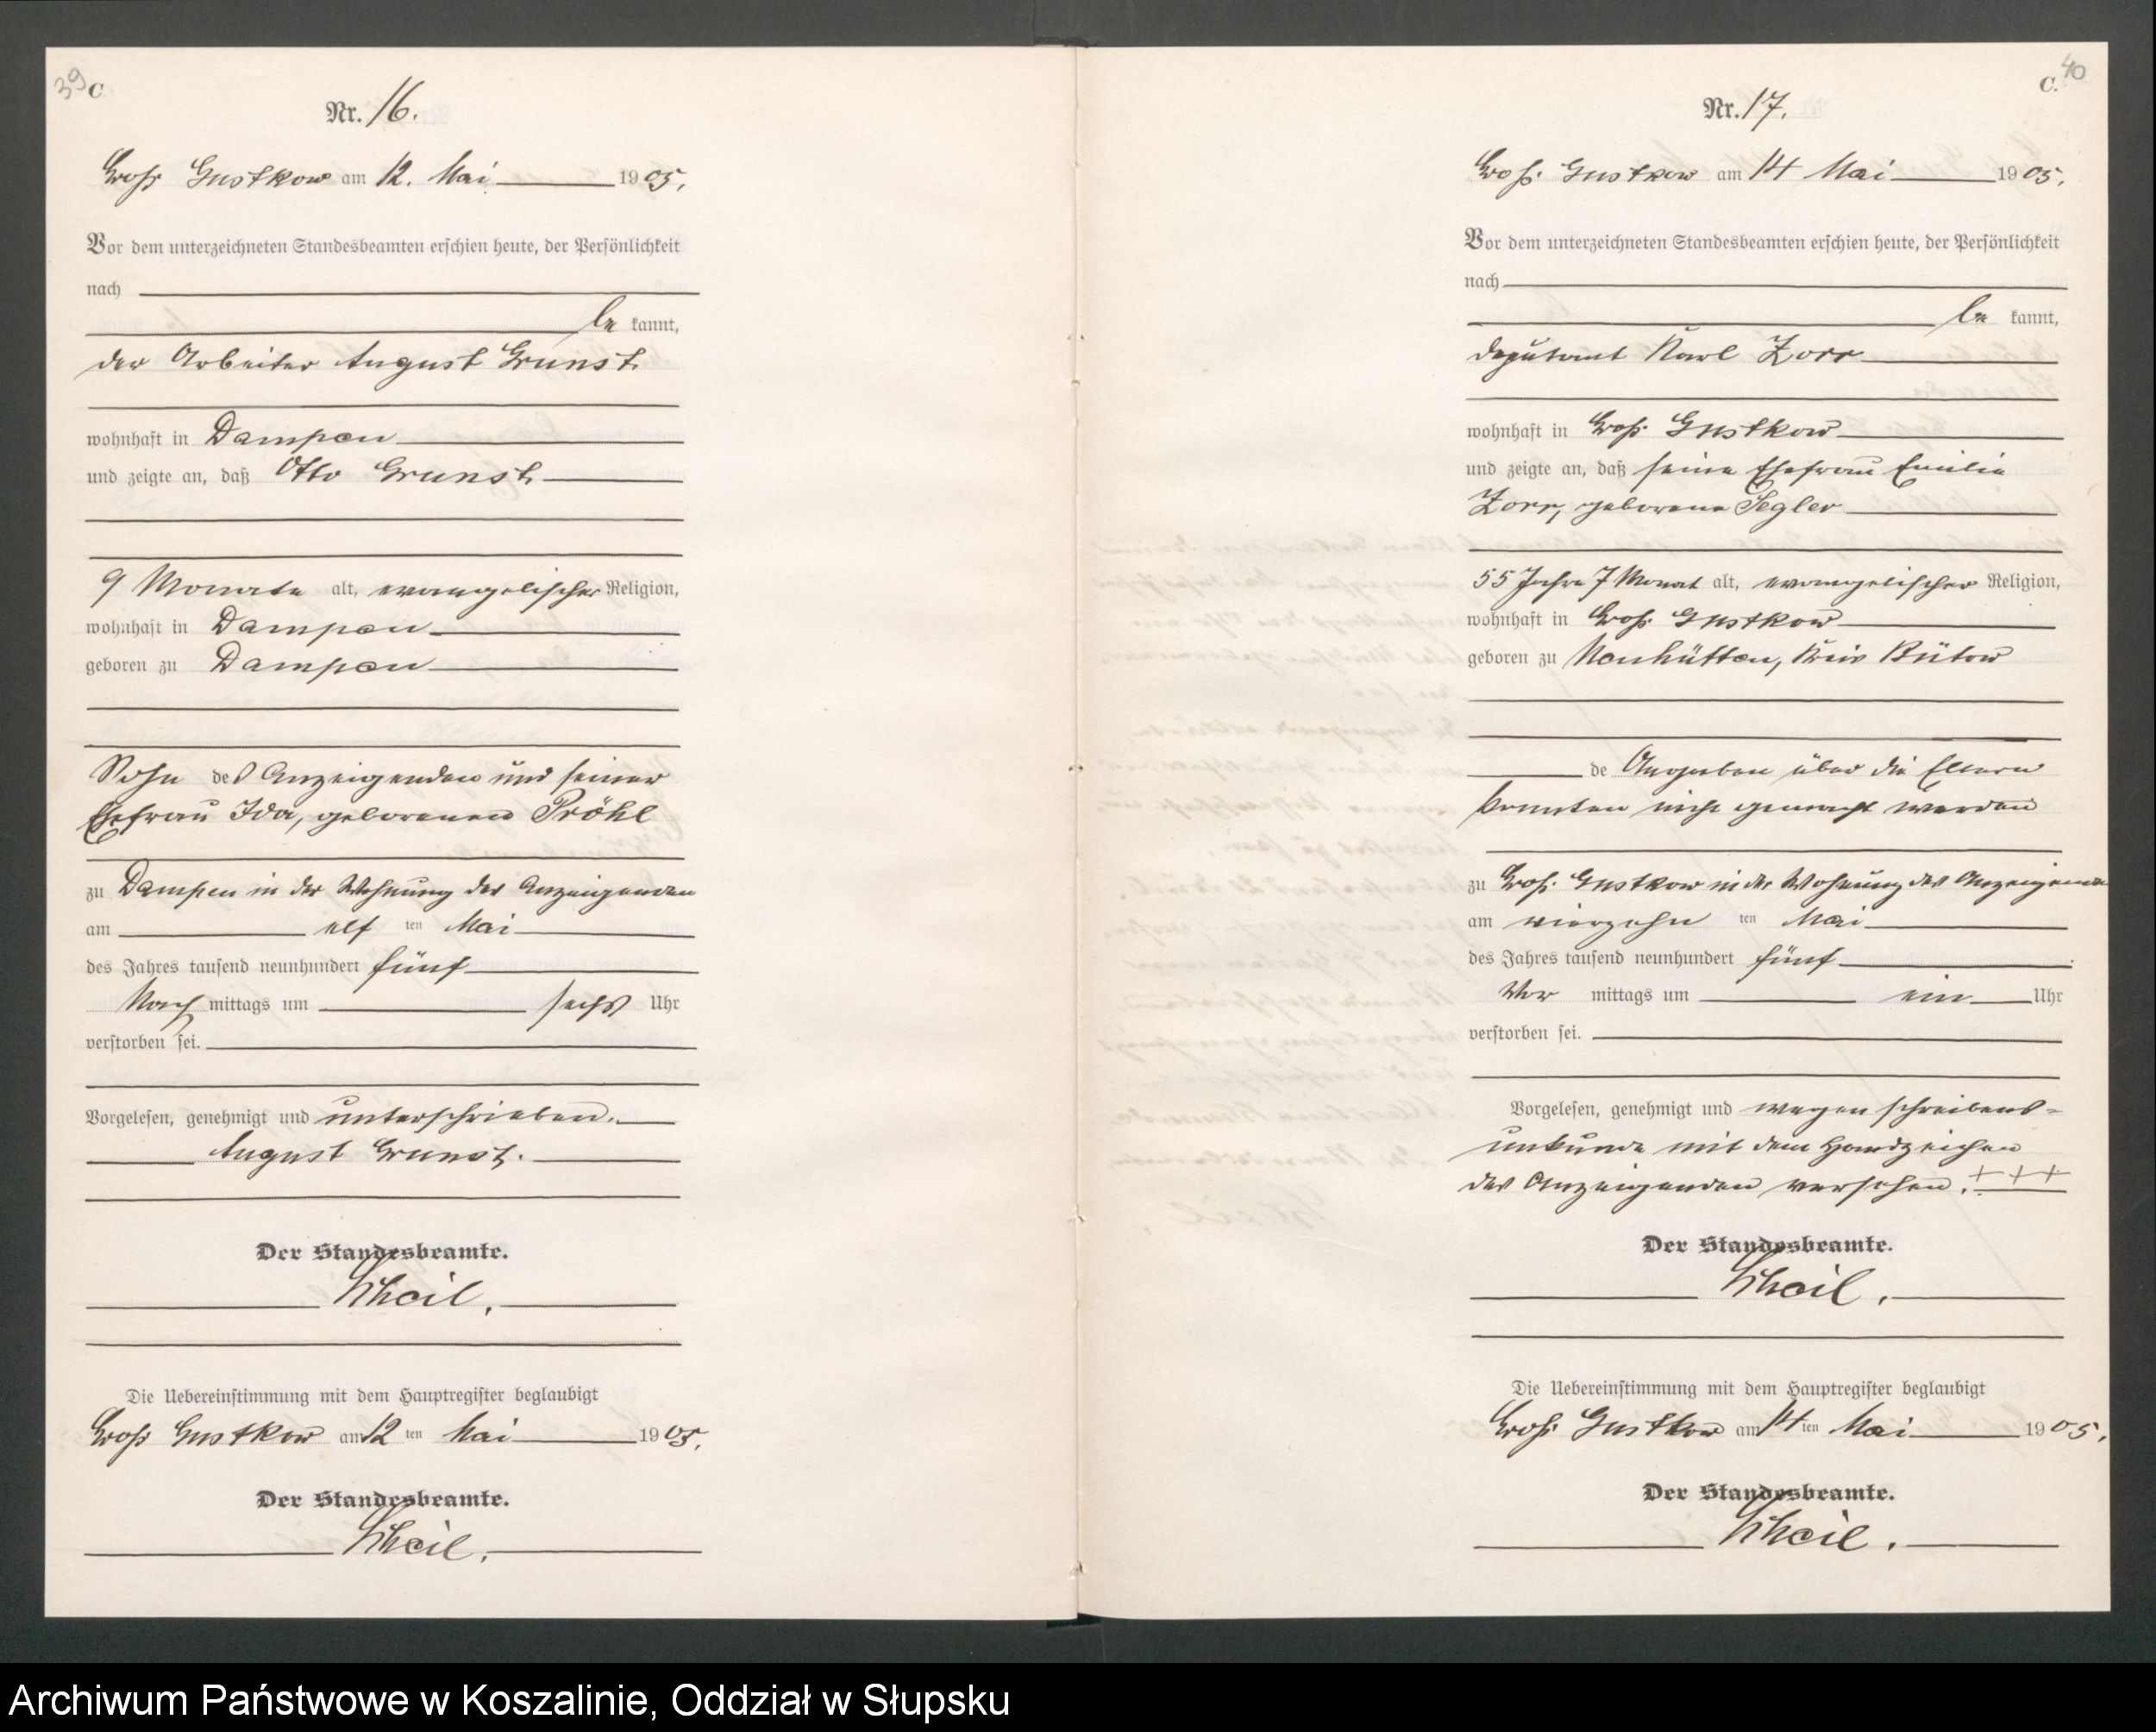 39 C
Nr. 16.
Groß Gustkow am 12. Mai 1905,
Vor dem unterzeichneten Standesbeamten erschien heute, der Persönlichkeit
nach
be kannt,
der Arbeiter August Grunst
wohnhaft in Dampen
und zeigte an, daß Otto Grunst
9 Monate alt, evangelischer Religion,
wohnhaft in Dampen
geboren zu Dampen
Sohn des Anzeigenden und seiner
Ehefrau Ida, geborenen Pröhl
zu Dampen in der Wohnung des Anzeigenden
am elf ten Mai
des Jahres tausend neunhundert fünf
Nach mittags um sechs Uhr
verstorben sei.
Vorgelesen, genehmigt und unterschrieben.
August Grunst.
Der Standesbeamte.
Die Uebereinstimmung mit dem Hauptregister beglaubigt
Groß Gustkow am 12 ten Mai 1905.
Der Standesbeamte.
C. 40
Nr. 17.
Groß Gustkow am 14 Mai 1905.
Vor dem unterzeichneten Standesbeamten erschien heute, der Persönlichkeit
nach
be kannt,
Deputant Karl Zorr
wohnhaft in Groß Gustkow
und zeigte an, daß seine Ehefrau Emilie
Zorr, geborene Segler
55 Jahre 7 Monat alt, evangelischer Religion,
wohnhaft in Groß Gustkow
geboren zu Neuhütten, Kreis Bütow
de Angaben über die Eltern
konnten nicht gemacht werden
zu Groß Gustkow in der Wohnung des Anzeigenden
am vierzehn ten Mai
des Jahres tausend neunhundert fünf
Vor mittags um ein Uhr
verstorben sei.
Vorgelesen, genehmigt und wegen Schreibens-
unkunde mit dem Handzeichen
des Anzeigenden versehen. + + +
Der Standesbeamte.
Die Uebereinstimmung mit dem Hauptregister beglaubigt
Groß Gustkow am 14 ten Mai 1905.
Der Standesbeamte.
Archiwum Państwowe w Koszalinie, Oddział w Słupsku